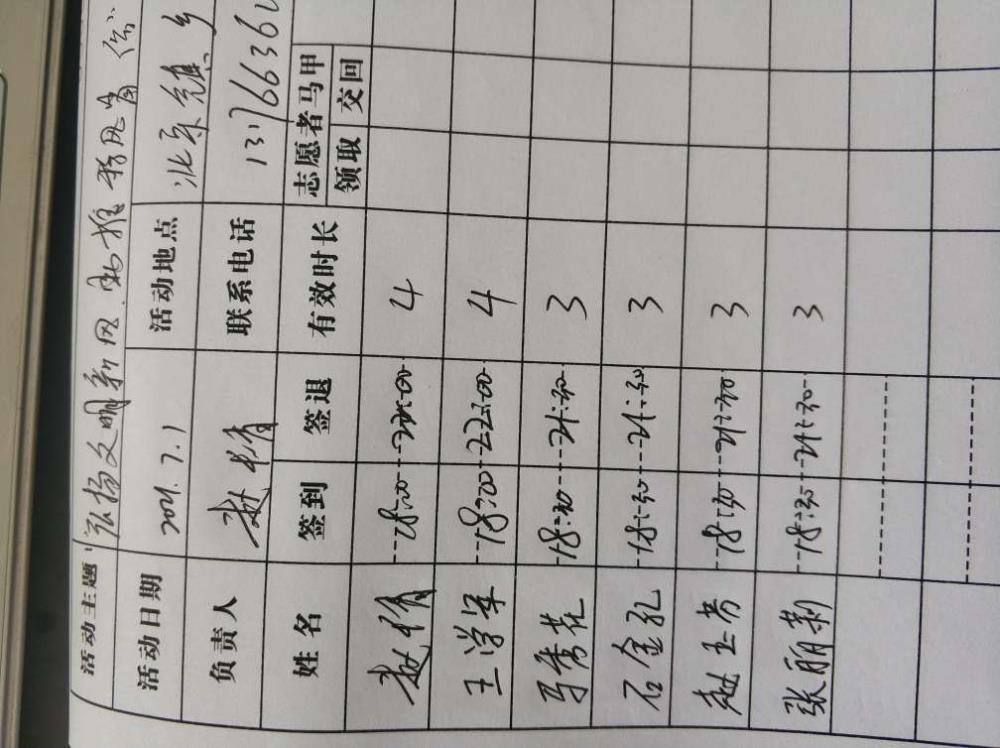 活动主题 弘扬文明新风
活动日期 2021.7.1 活动地点 北京
负责人 赵倩 联系电话
姓名 签到 签退 有效时长 志愿者马甲
领取 交回
赵倩 18:00 22:00 4
王学军 18:00 22:00 4
马秀花 18:30 21:30 3
石金孔 18:30 21:30 3
赵玉芳 18:30 21:30 3
张丽莉 18:30 21:30 3